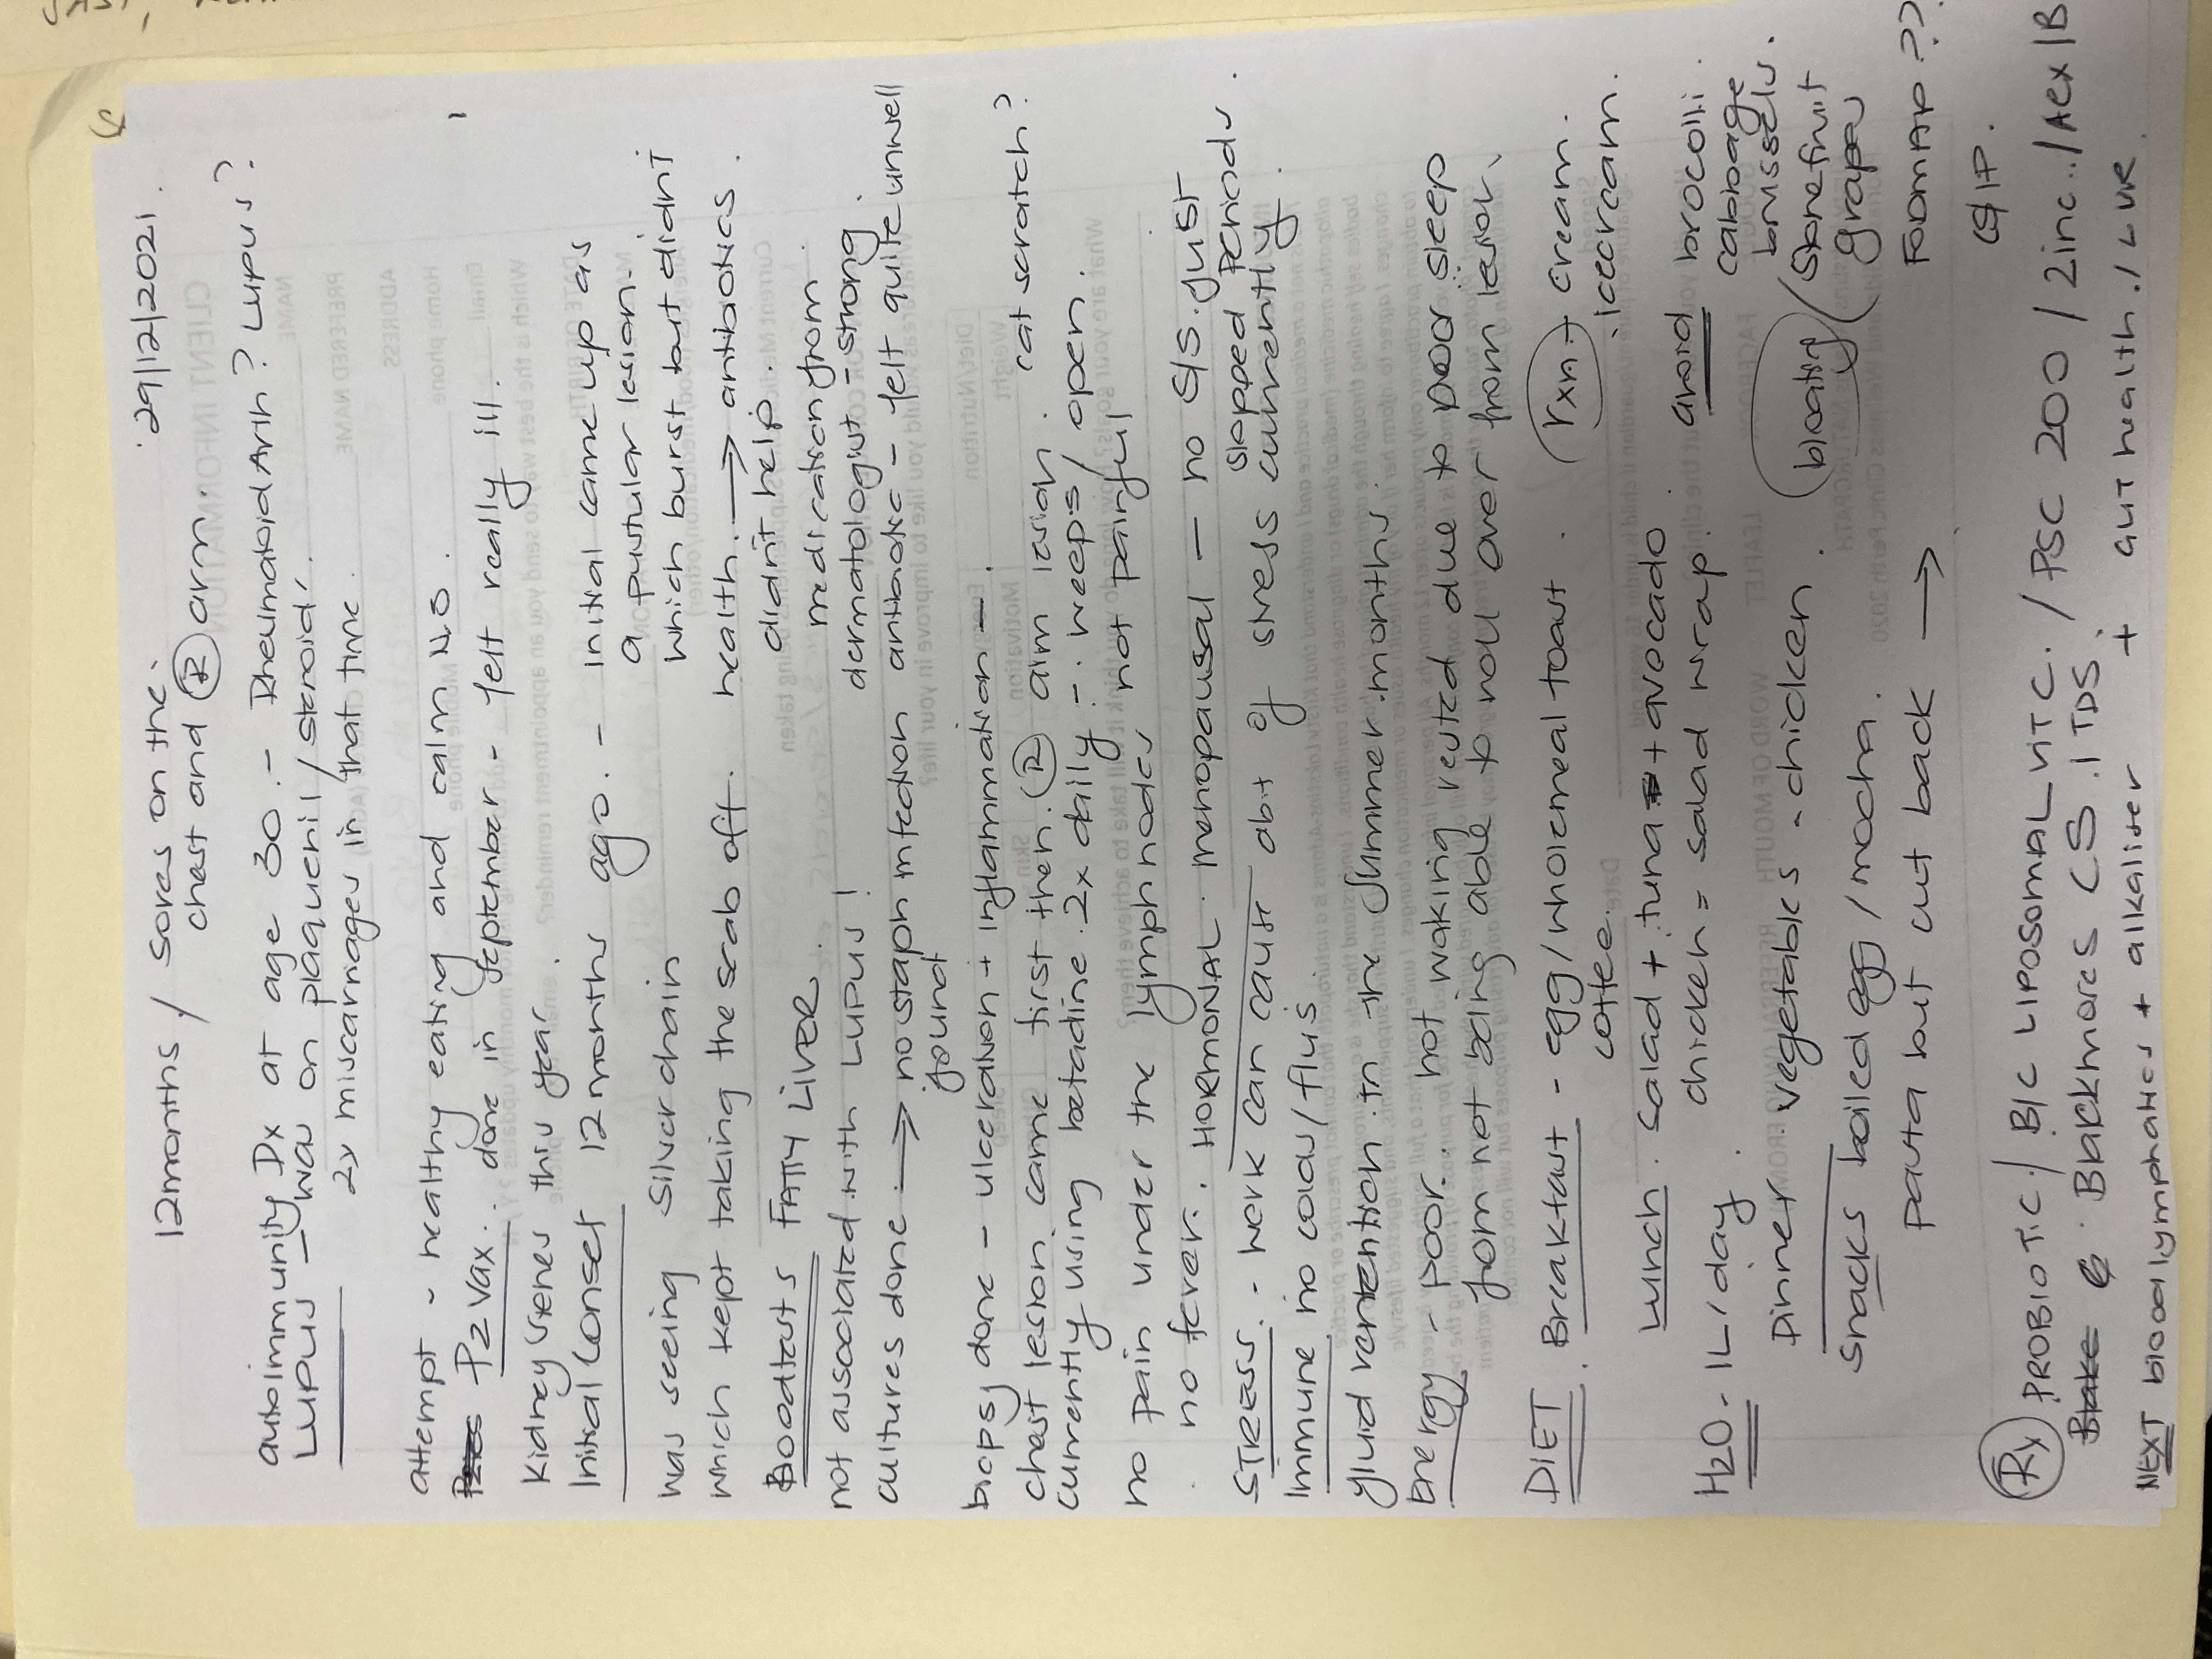 29/12/2021.
12months / sores on the
chest and R arm.
autoimmunity Dx at age 30. - Rheumatoid Arth? Lupus?
Lupus - was on plaquenil / steroid.
2x miscarriages in that time.
attempt - healthy eating and calm N.S.
Pz Vax. done in September - felt really ill.
Kidney stones this year.
Initial Conset 12 months ago. - initial came up as
a pustular lesion.
was seeing Silverchain which burst but didnt
which kept taking the scab off. health. → antibiotics.
didn't help.
Bloodtests FATTY LIVER. medication from
not associated with Lupus! dermatologist - strong
cultures done → no staph infection antibiotic - felt quite unwell
found
biopsy done - ulceration + inflammation -.
chest lesion. came first then. R arm lesion. cat scratch?
currently using betadine. 2x daily - weeps / open.
no pain under the lymphnodes not painful
. no fever. HORMONAL. menopausal - no S/S. just
stopped periods.
STRESS. - work can cause abit of stress currently.
Immune no colds/flu's
fluid rentention in the Summer months.
Energy - poor. not waking rested due to poor sleep
from not being able to roll over from lesion.
DIET. Breakfast - egg/wholemeal toast. rxn + cream.
coffee. . icecream.
Lunch. salad + tuna + avocado. avoid brocolli
chicken = salad wrap. cabbage
H2O - 1L/day. brussels.
Dinner vegetables - chicken. bloating / stonefruit
grapes
Snacks boiled egg / mocha.
pasta but cut back → FODMAP??
GIT.
Rx PROBIOTIC / B/C LIPOSOMAL VIT C. / PSC 200 / zinc. / Aex/B
Blackmores CS. 1 TDS.
NEXT blood lymphatics + alkaliser + gut health. / LVR
CLIENT INFORMATION
NAME
PREFERED NAME
ADDRESS
Home phone
Email